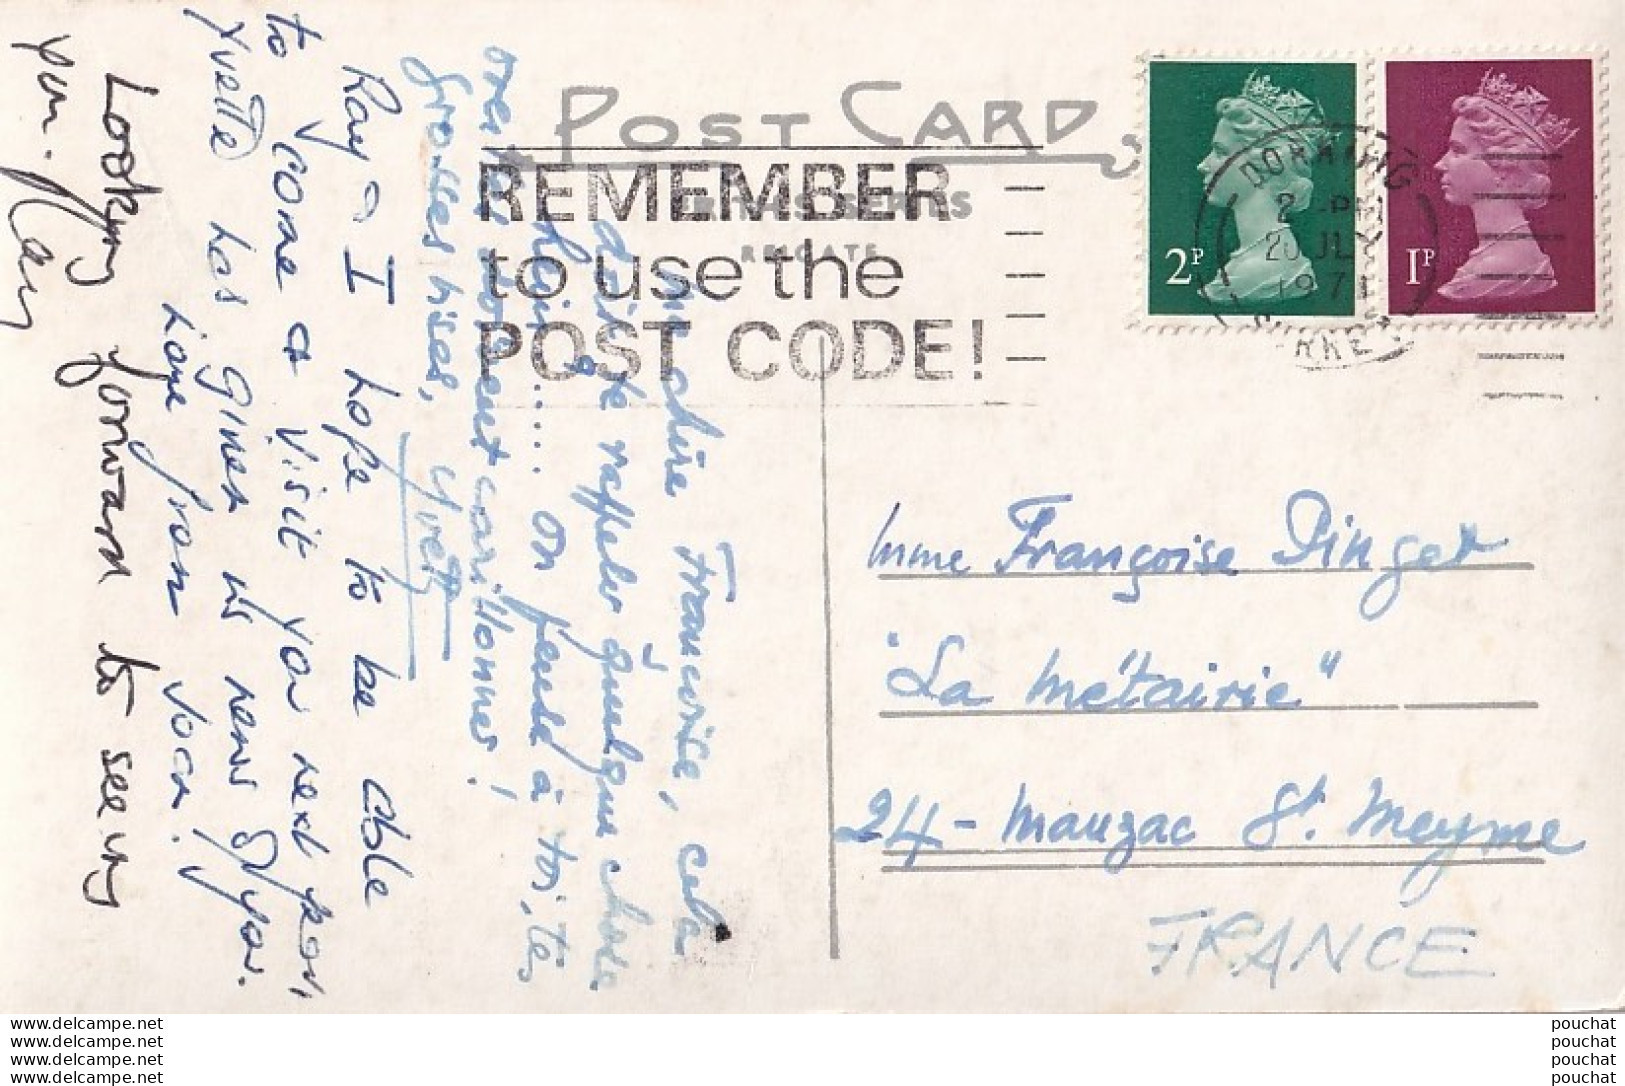 POST CARD
REMEMBER
to use the
POST CODE!
DORKING
JL
197
2P
1P
Ma chère Françoise, cela
doit te rappeler quelque chose
hein..... on pense à toi, tes
oreilles doivent carillonner!
Grosses bises, Yvette
Ray & I hope to be able
to come & visit you next year,
Yvette has given us news of you.
Love from Joan.
Looking forward to seeing
you. Ray
Mme Françoise Pinget
"La Métairie"
24 - Mauzac St. Meyme
FRANCE
www.delcampe.net
www.delcampe.net
www.delcampe.net
www.delcampe.net
pouchat
pouchat
pouchat
pouchat